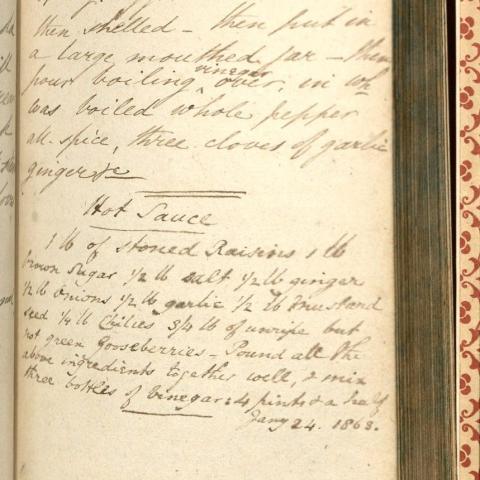 then shelled - then put in
a large mouthed jar - then
pour boiling vinegar over, in wh
was boiled whole pepper
all-spice, three cloves of garlic
ginger &c
Hot Sauce
1 lb of stoned Raisins 1 lb
brown Sugar 1/2 lb salt 1/2 lb ginger
1/2 lb onions 1/2 lb garlic 1/2 lb mustard
seed 1/4 lb Chilies 3/4 lb of unripe but
not green Gooseberries - Pound all the
above ingredients together well, & mix
three bottles of Vinegar: 4 pints & a half
Jany 24. 1868.